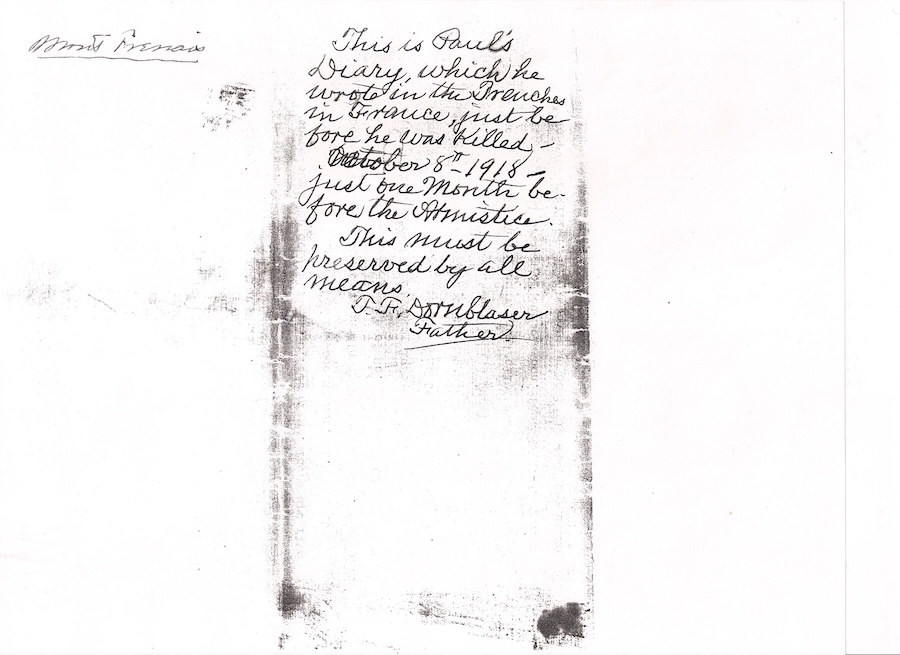 Mont Frenais
This is Paul's
Diary, which he
wrote in the Trenches
in France, just be
fore he was killed,-
October 8th-1918-
just one Month be-
fore the Armistice.
This must be
preserved by all
means.
T. F. Dornblaser
Father.